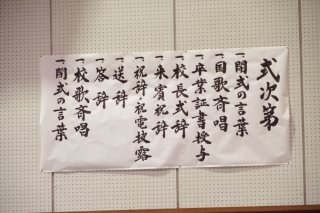 式次第
一、開式の言葉
一、国歌斉唱
一、卒業証書授与
一、校長式辞
一、来賓祝辞
一、祝辞・祝電披露
一、送辞
一、答辞
一、校歌斉唱
一、閉式の言葉